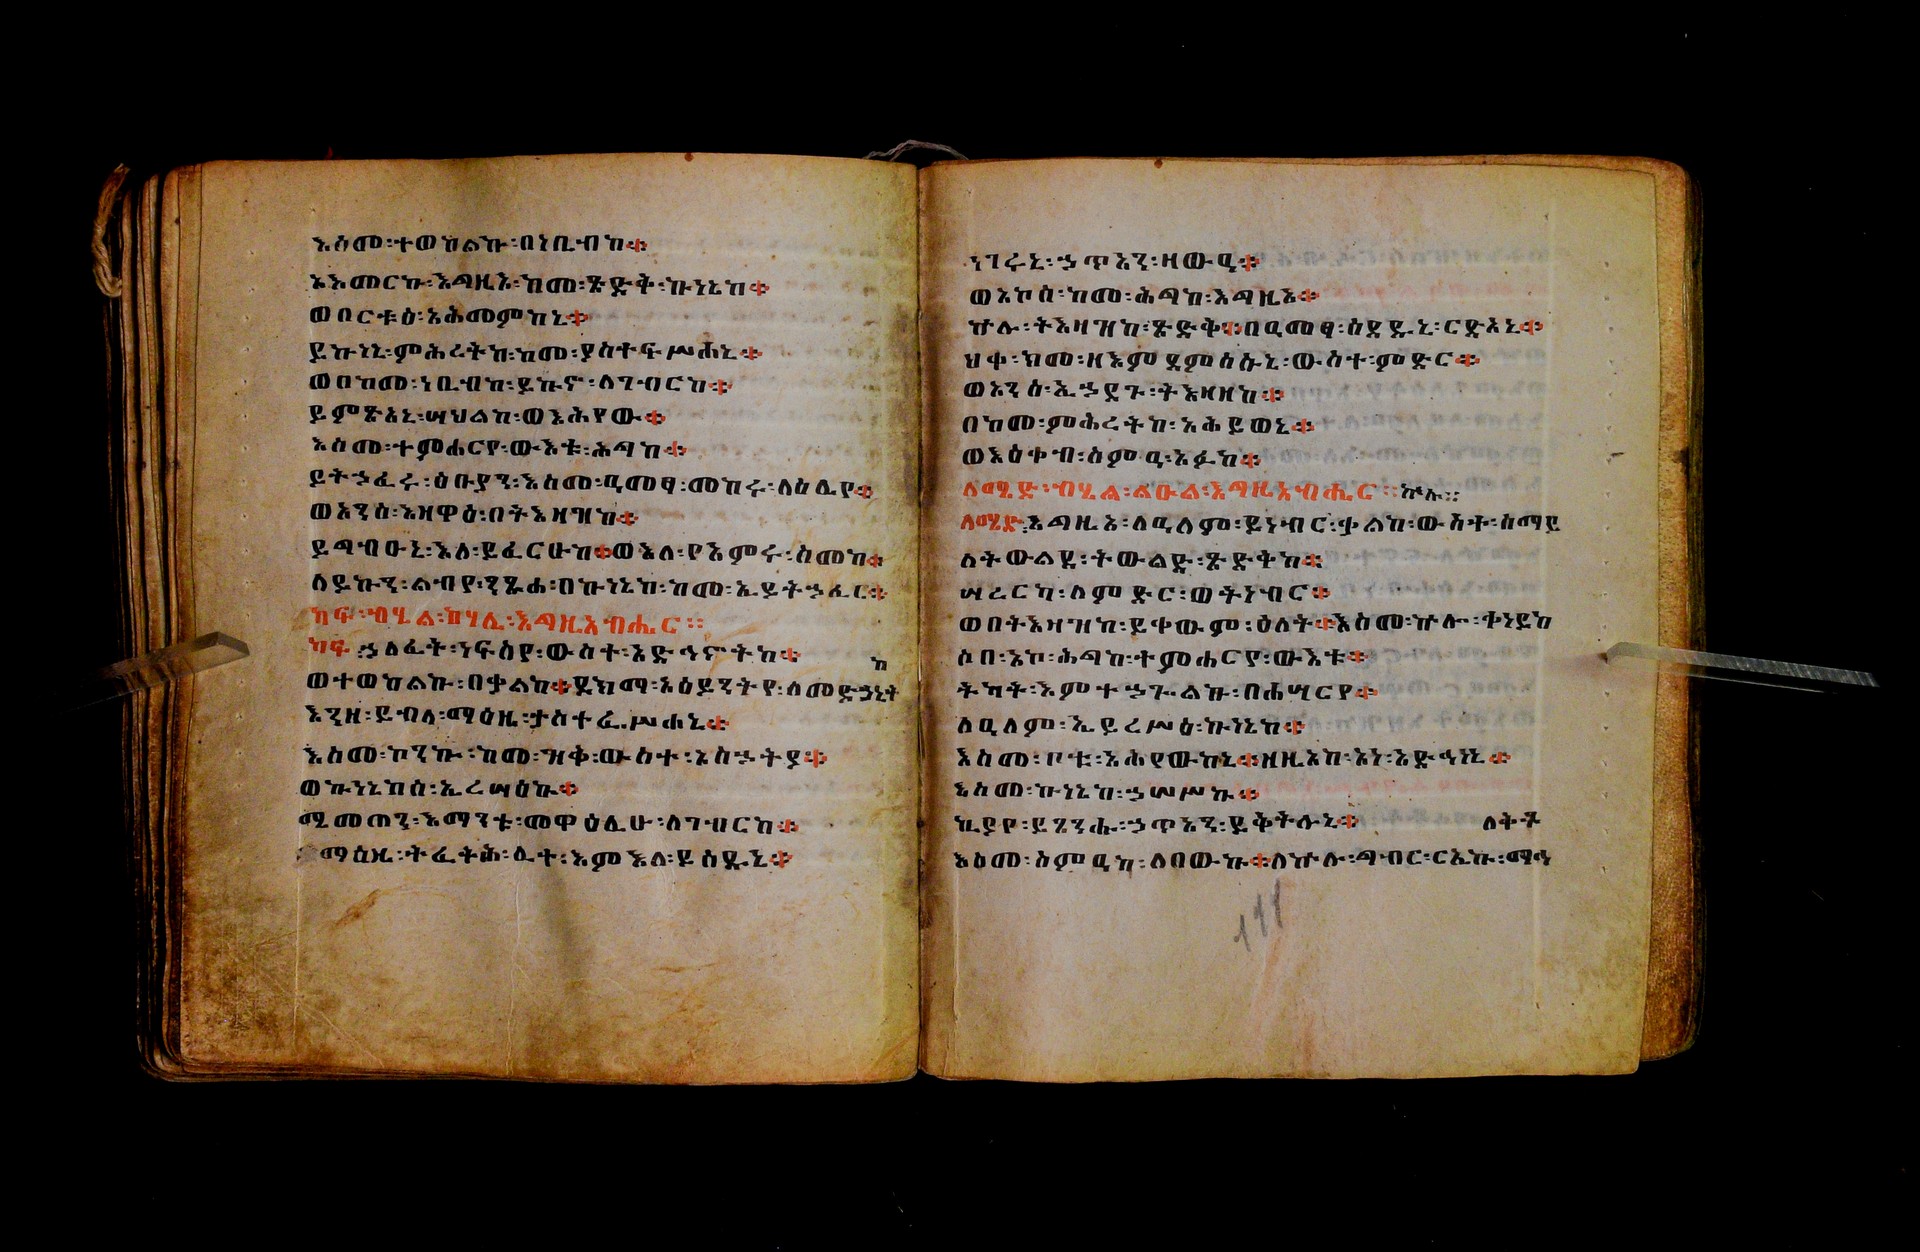 እስመ፡ተወከልኩ፡በነቢብከ።
አእመርኩ፡እግዚእ፡ከመ፡ጽድቅ፡ኩነኔከ።
ወበርቱዕ፡አሕመምከኒ።
ይኩነኒ፡ምሕረትከ፡ከመ፡ያስተፍሥሐኒ።
ወበከመ፡ነቢብከ፡ይኩኖ፡ለገብርከ።
ይምጽአኒ፡ሣህልከ፡ወአሕየው።
እስመ፡ተምሐርየ፡ውእቱ፡ሕግከ።
ይትኃፈሩ፡ዕቡያን፡እስመ፡ዓመፃ፡መከሩ፡ለዕሌየ።
ወአንሰ፡እዛዋዕ፡በትእዛዝከ።
ይግብዑኒ፡እለ፡ይፈርሁከ።ወእለ፡የአምሩ፡ስመከ።
ለይኩን፡ልብየ፡ንጹሐ፡በኩነኔከ፡ከመ፡ኢይትኃፈር።
ካፍ፡ብሂል፡ከሃሊ፡እግዚአብሔር።
ካፍ፡ኃለፈት፡ነፍስየ፡ውስተ፡አድኅኖትከ።
ወተወከልኩ፡በቃልከ።ደክማ፡አዕይንትየ፡ለመድኃኒት
ከ
እንዘ፡ይብላ፡ማዕዜ፡ታስተፌሥሐኒ።
እስመ፡ኮንኩ፡ከመ፡ዝቅ፡ውስተ፡አስኃትያ።
ወኩነኔከሰ፡ኢረሣዕኩ።
ሚመጠን፡እማንቱ፡መዋዕሊሁ፡ለገብርከ።
ማዕዜ፡ትፈትሕ፡ሊተ፡እምእለ፡ይሰዱኒ።
ነገሩኒ፡ኃጥአን፡ዛውዓ።
ወአኮሰ፡ከመ፡ሕግከ፡እግዚእ።
ኵሉ፡ትእዛዝከ፡ጽድቅ።በዓመፃ፡ሰደዱኒ፡ርድአኒ።
ህቀ፡ክመ፡ዘእምደምሰሱኒ፡ውስተ፡ምድር።
ወአንሰ፡ኢኃደጉ፡ትእዛዘከ።
በከመ፡ምሕረትከ፡አሕይወኒ።
ወእዕቀብ፡ስምዓ፡አፉከ።
ለሜድ፡ብሂል፡ልዑል፡እግዚአብሔር።
ለሜድ፡እግዚኦ፡ለዓለም፡ይነብር፡ቃልከ፡ውስተ፡ሰማይ
ለትውልደ፡ትውልድ፡ጽድቅከ።
ሣረርካ፡ለምድር፡ወትነብር።
ወበትእዛዝከ፡ይቀውም፡ዕለት።እስመ፡ኵሉ፡ቀነይከ
ሶበ፡አኮ፡ሕግከ፡ተምሐርየ፡ውእቱ።
ትካት፡እምተኃጐልኩ፡በሐሣርየ።
ለዓለም፡ኢይረሥዕ፡ኩነኔከ።
እስመ፡ቦቱ፡አሕየውከኒ።ዘዚአከ፡አነ፡አድኅነኒ።
እስመ፡ኩነኔከ፡ኃሠሥኩ።
ኪያየ፡ይጸንሑ፡ኃጥአን፡ይቅትሉኒ።
እስመ፡ስምዓከ፡ለበውኩ።ለኵሉ፡ግብር፡ርኢኩ፡ማኅ
ለትቶ